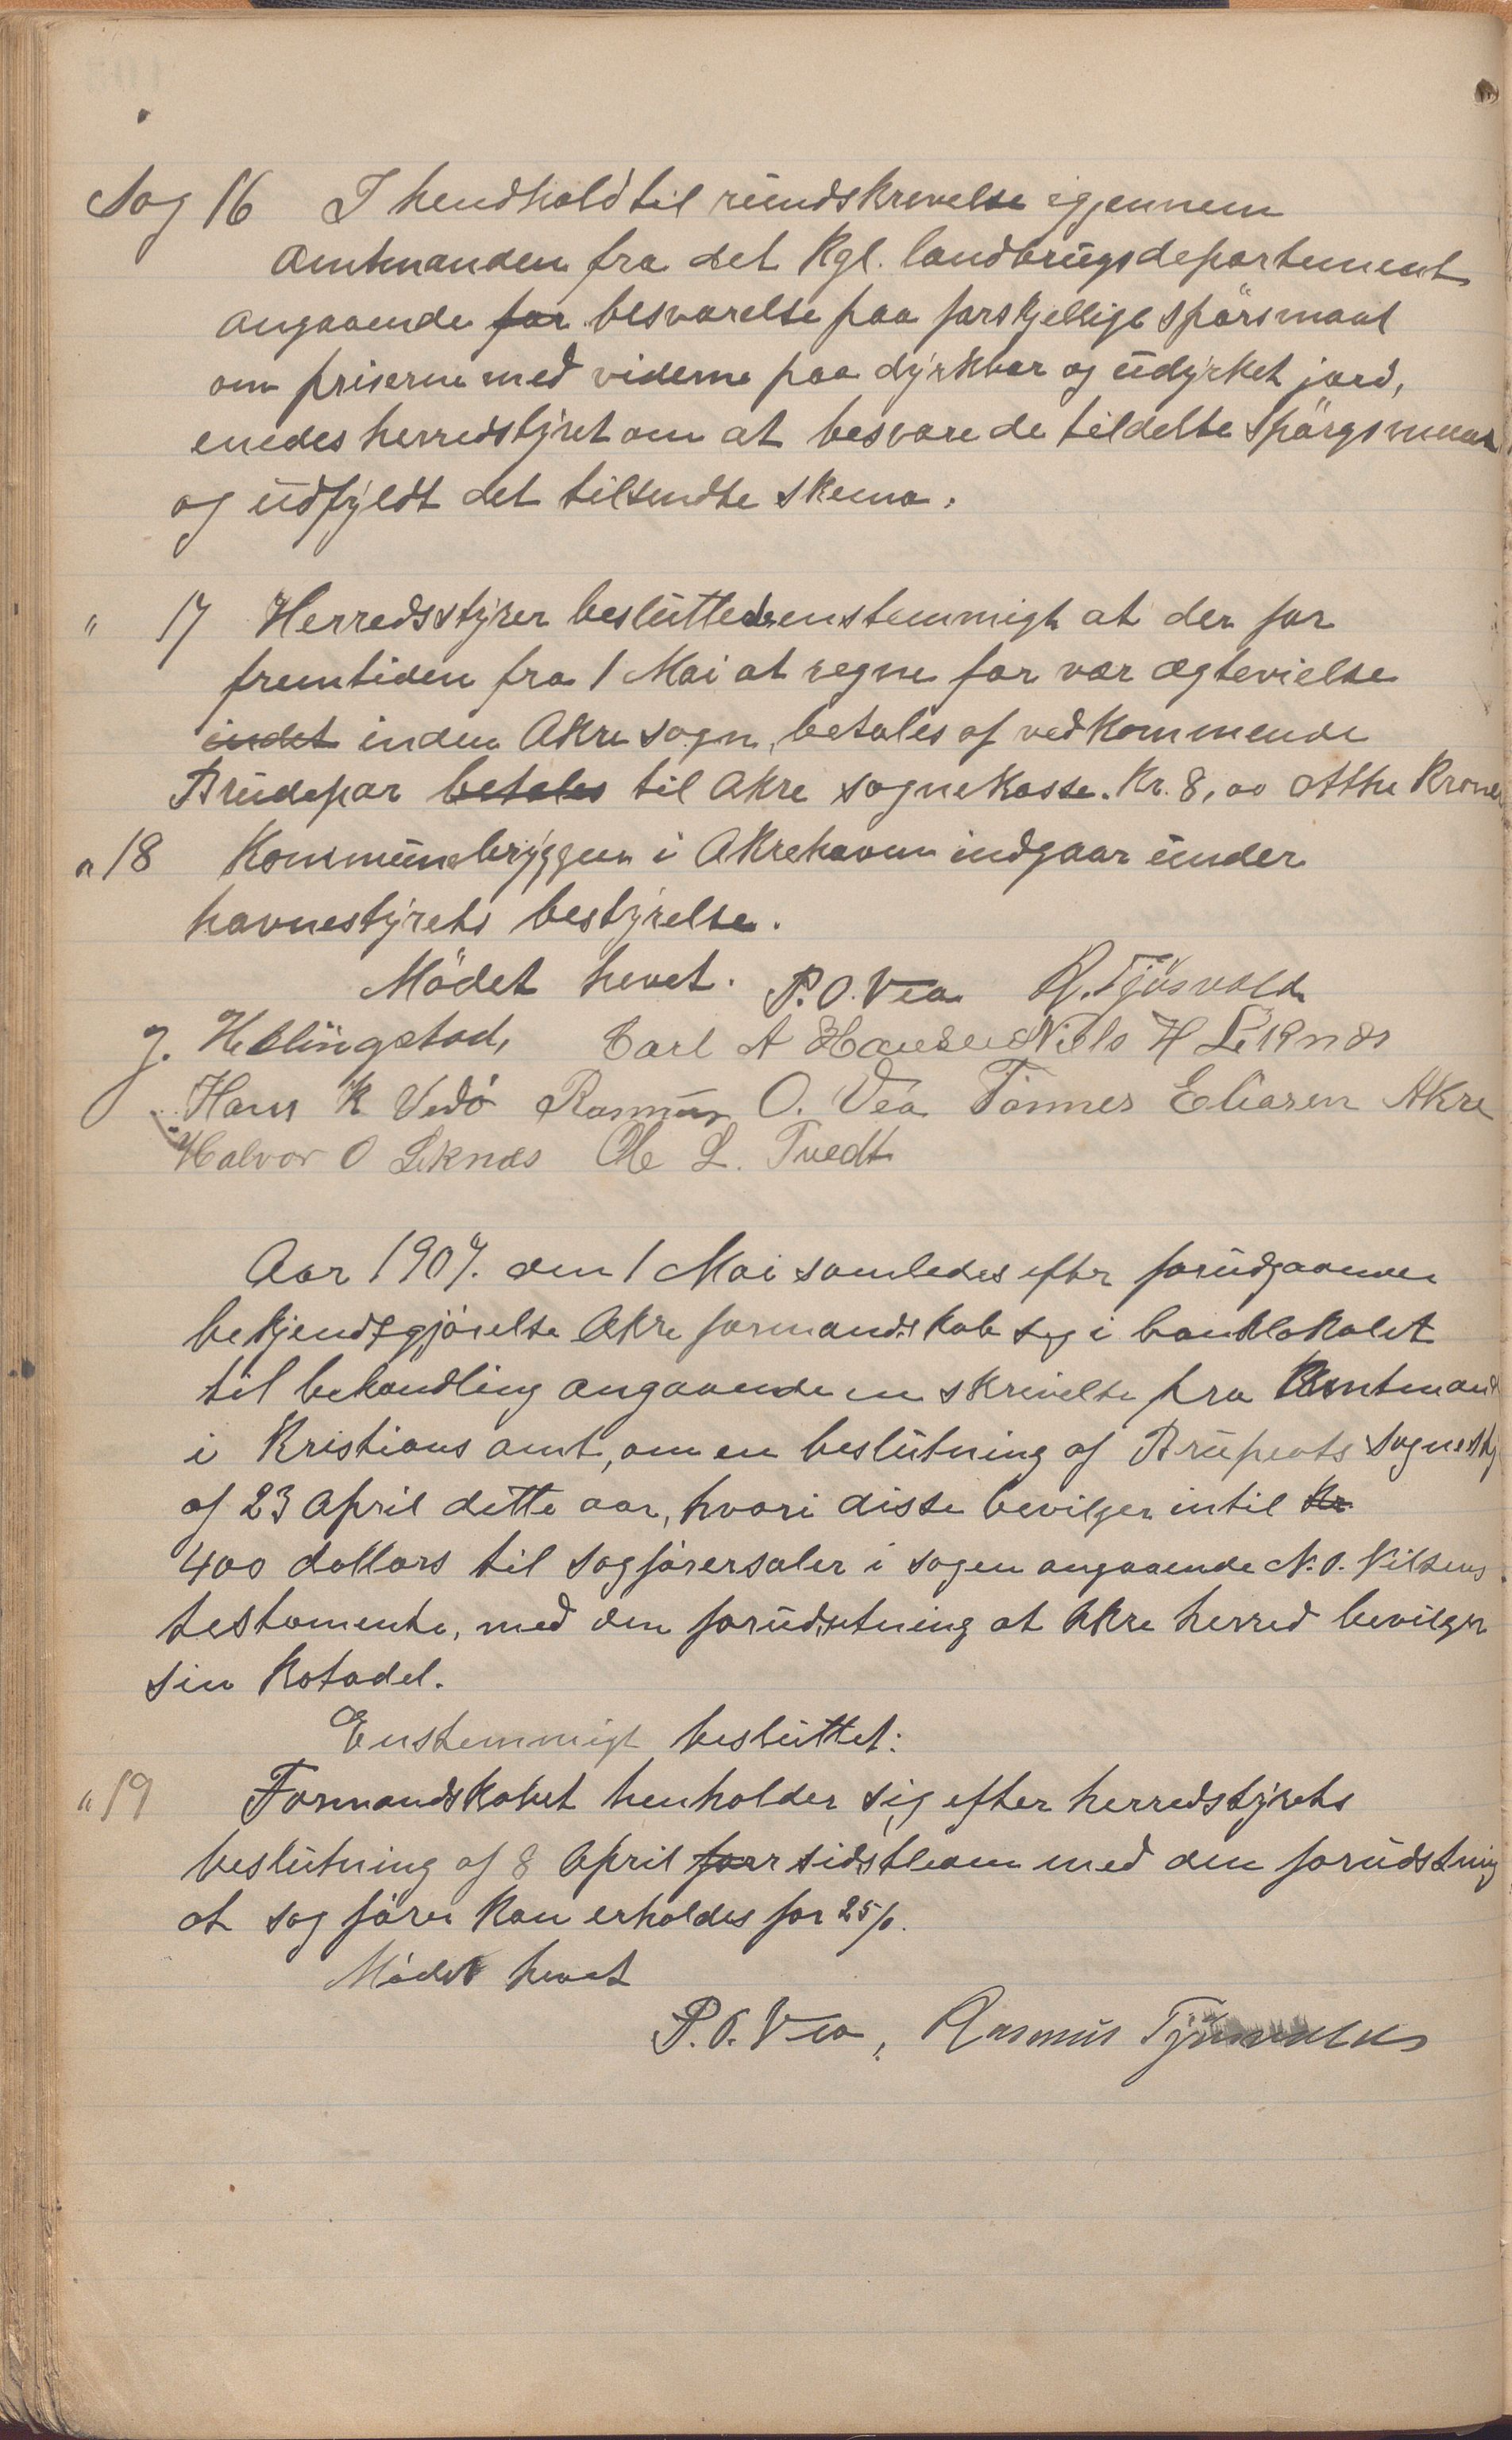 Sag 16 I hendhold til rundskrevelse igjennem
Amtmanden fra det Kgl. landbrugsdepartement
angaaende for besvarelse paa forskjellige spörsmaal
om priserne med viderne paa dyrkbar og udyrket jord,
enedes herredstyret om at besvare de tildelte spörgsmaal
og udfyldt det tilsendte skema.
" 17 Herredsstyrer besluttede enstemmigt at der for
fremtiden fra 1 Mai at regne for vær ægtevielse
indet inden Akre sogn, betales af vedkommende
Brudepar betales til Akre sognekasse. Kr. 8,00 Otthe Kroner
" 18 Kommunebryggen i Akrehavn indgaar under
havnestyrets bestyrelse.
Mödet hevet. P. O. Vea R. Tjösvold
J. Hellingstad, Carl A Hansen Niels H Liknes
Hans K Vedö Rasmus O. Vea Tönnes Eliasen Akre
Halvor O Liknes Ole L. Tvedt
Aar 1907. den 1 Mai samledes efter forudgaaende
bekjendtgjörelse Akre formandskab sig i banklokalet
til behandling angaaende en skrivelse fra Amtmand
i Kristians amt, om en beslutning af sognesty
af 23 April dette aar, hvori disse bevilger intil Kr.
400 dollars til sagförersalær i sagen angaaende N. O. Nilsens
testamente, med den forudsetning at Akre herred bevilger
sin kotadel.
Enstemmigt besluttet:
" 19 Formandskabet henholder sig efter herredstyrets
beslutning af 8 April for sidstleden med den forudstning
at sagförer kan erholdes for 25%.
Mödet hevet
P. O. Vea, Rasmus Tjösvold